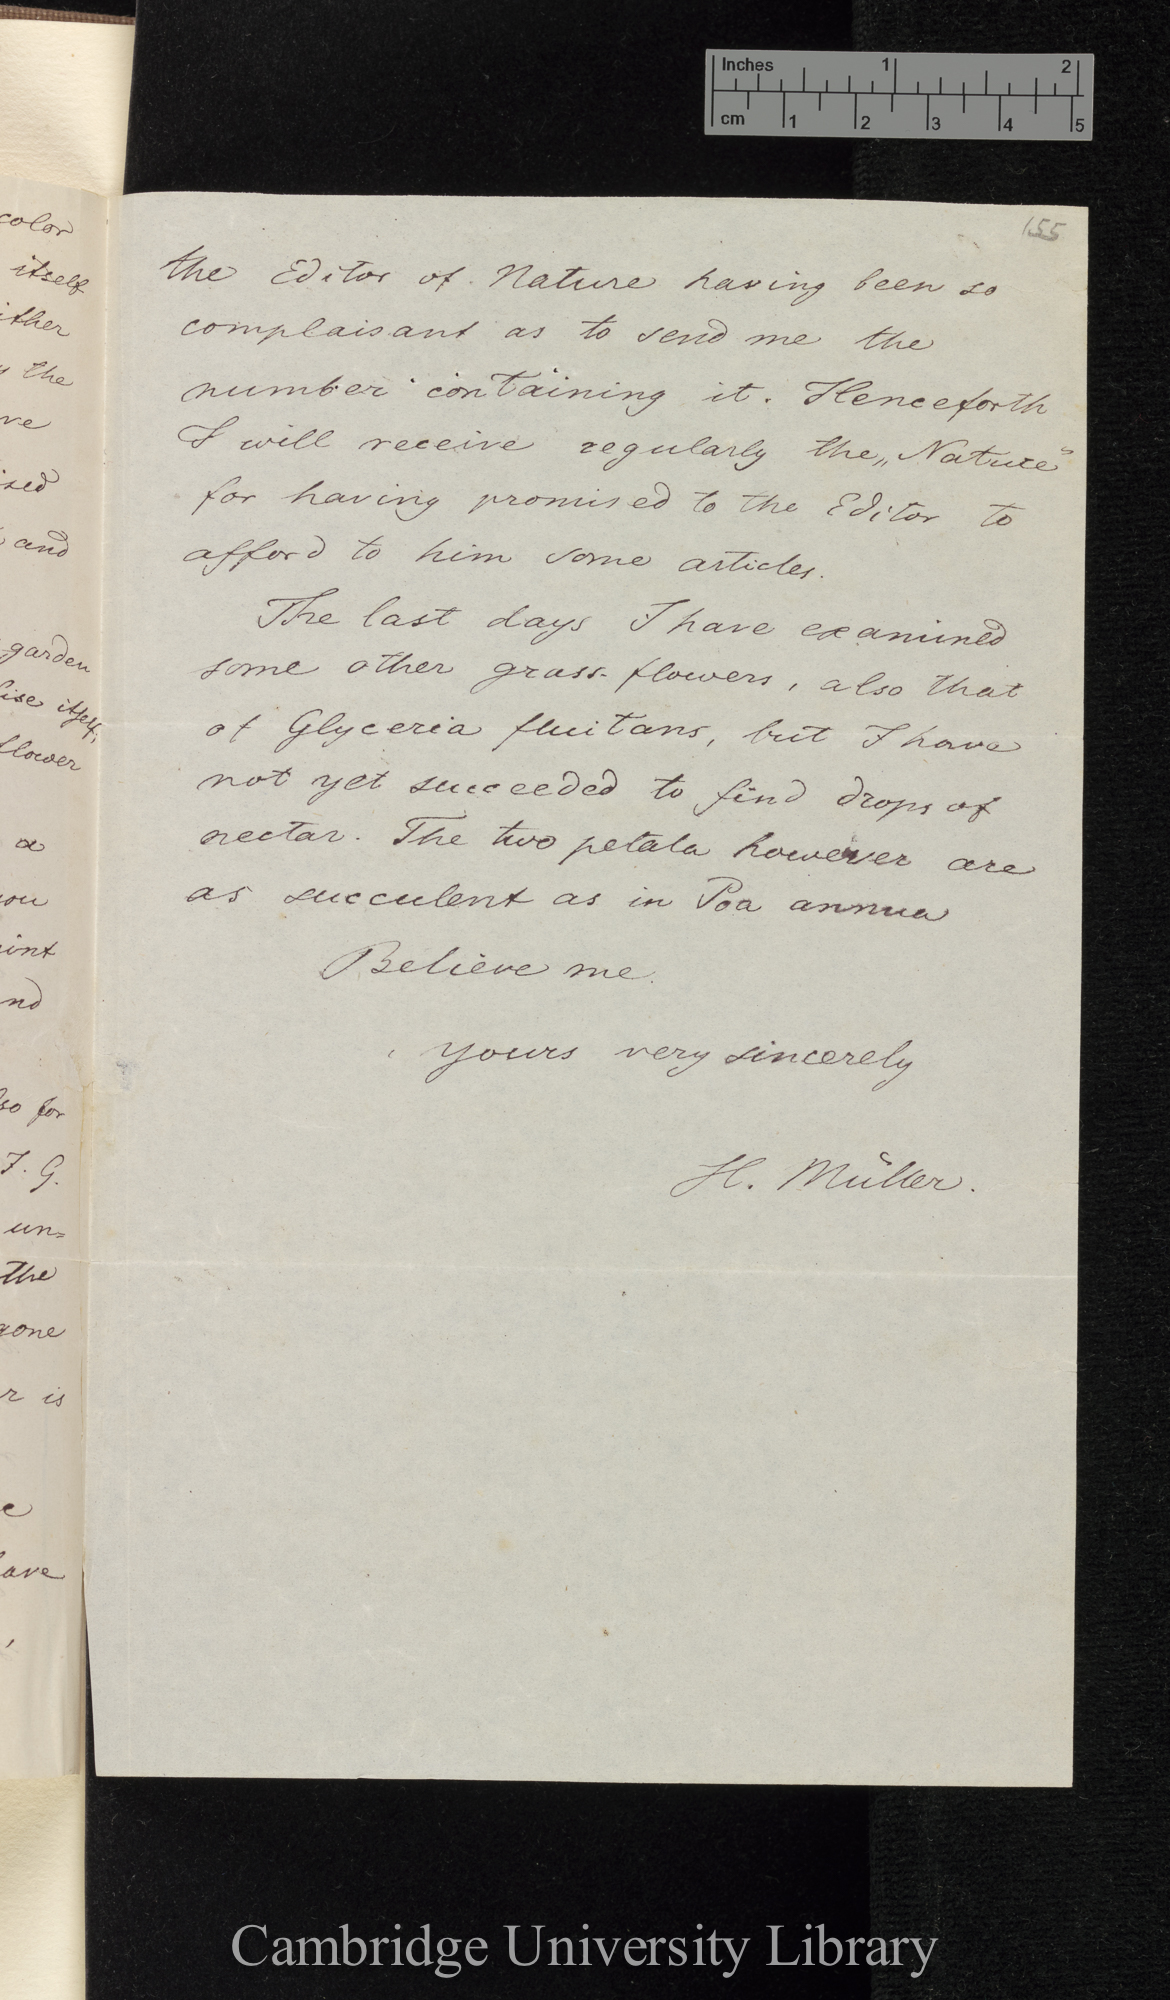 Inches 1 2
cm 1 2 3 4 5
155
color
itself
ither
the
ve
ised
and
garden
lise itself,
flower
a
you
oint
nd
so for
F. G.
un=
the
gone
r is
e
have
the Editor of Nature having been so
complaisant as to send me the
number containing it. Henceforth
I will receive regularly the „Nature“
for having promised to the Editor to
afford to him some articles.
The last days I have examined
some other grass-flowers, also that
of Glyceria fluitans, but I have
not yet succeeded to find drops of
nectar. The two petala however are
as succulent as in Poa annua
Believe me
yours very sincerely
H. Müller.
Cambridge University Library